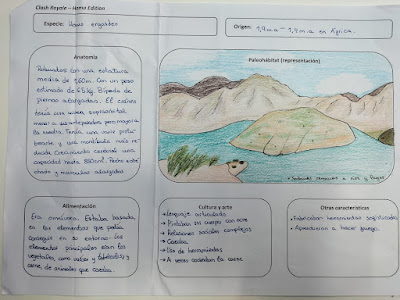 Clash Royale – Homo Edition
Especie: Homo ergaster
Origen: 1,9 m.a – 1,4 m.a en África.
Anatomía
Robustos con una estatura
media de 1,60m. Con un peso
estimado de 65 kg. Bípedo de
piernas alargadas. El cráneo
tenía una
menor a sus antepasados pero mayor a
la nuestra. Tenía una cara
y una mandíbula más re-
ducida. Capacidad cerebral una
capacidad hasta 850cm³. Frente estre-
chada y musculos alargados.
Paleohábitat (representación)
• Sabanas cercanas a ríos y lagos
Alimentación
Era omnívora. Estaba basada
en los elementos que podía
conseguir en su entorno. Los
elementos principales eran los
vegetales, como raíces y tubérculos, y
carne, de animales que cazaba.
Cultura y arte
→ Lenguaje articulado
→ Pintaban sus cuerpos con ocre
→ Relaciones sociales complejas
→ Cocina
→ Uso de herramientas
→ A veces cocinaban la carne
Otras características
• Fabricaban herramientas sofisticadas
• Aprendieron a hacer fuego.